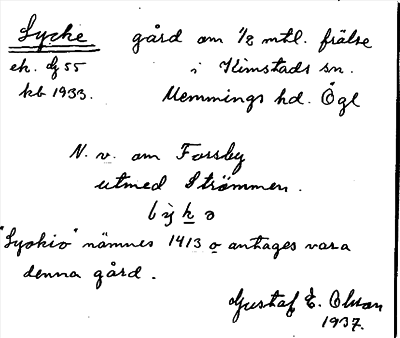 Lycke gård om 1/8 mtl. frälse
ek. bl 55 i Kimstads sn.
kb 1933. Memmings hd. Ögl
N. v. om Forsby
utmed Strömmen.
"Lyckio" nämnes 1413 o antages vara
denna gård.
Gustaf E. Olsson
1937.